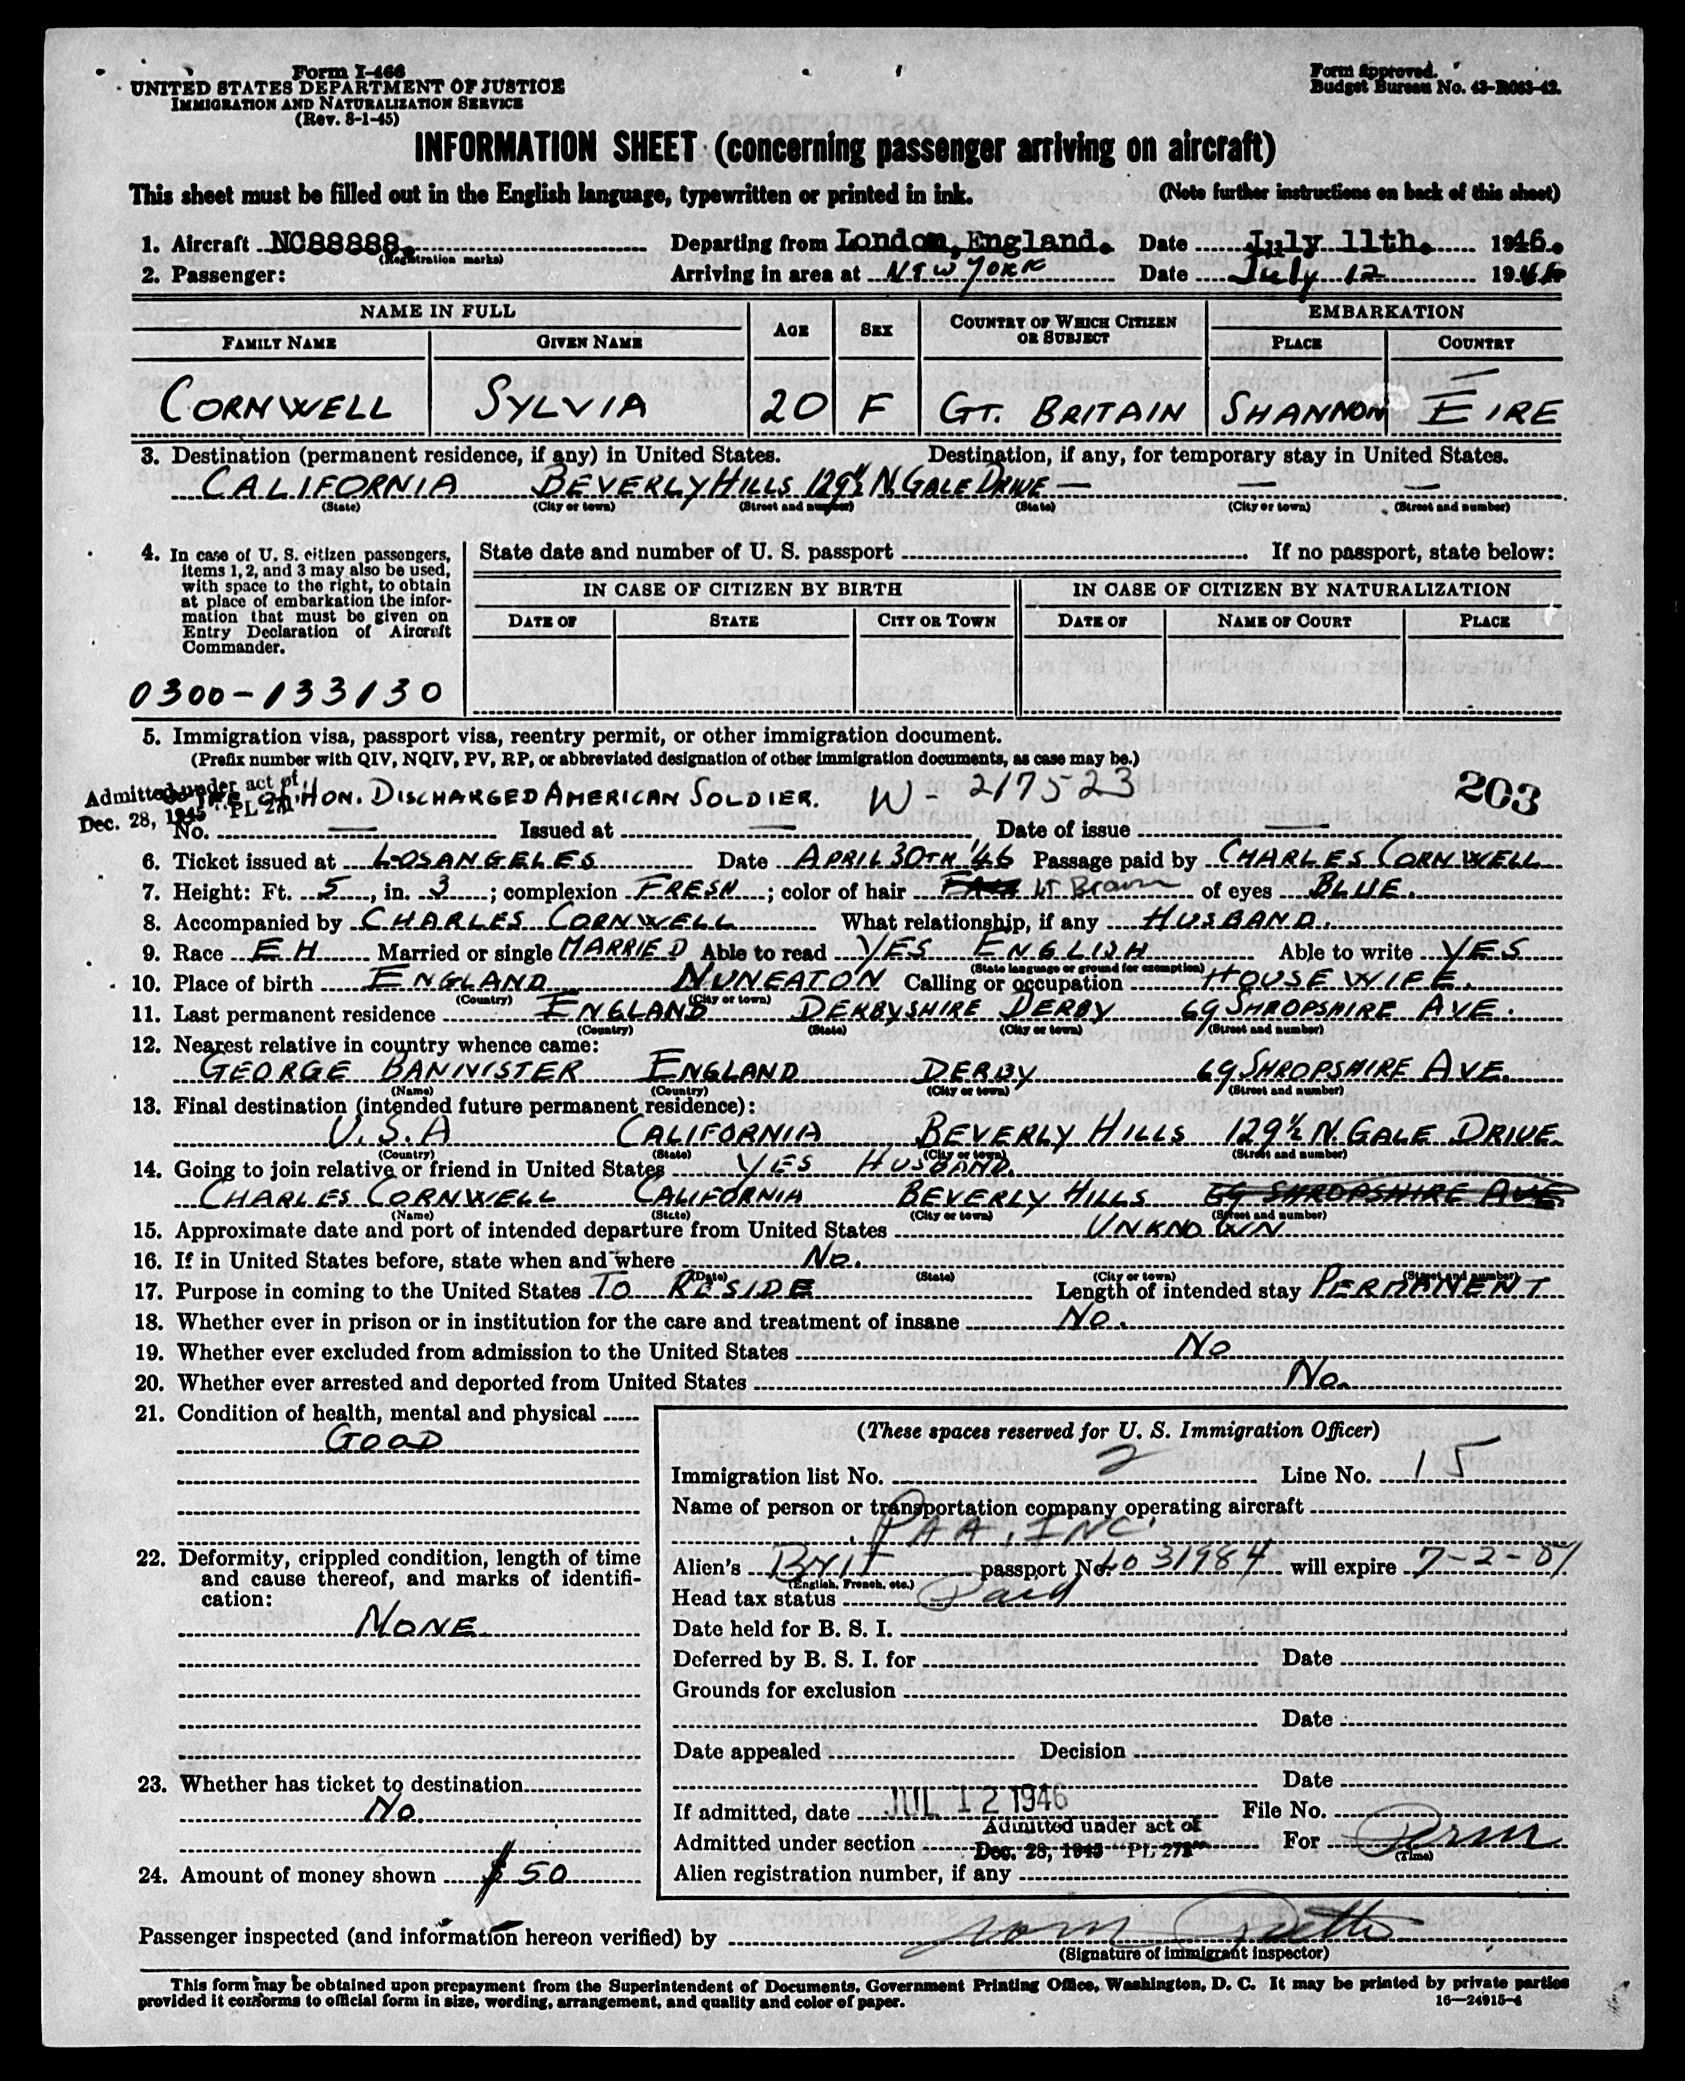 Form I-466
UNITED STATES DEPARTMENT OF JUSTICE
IMMIGRATION AND NATURALIZATION SERVICE
(Rev. 8-1-45)
Form approved.
Budget Bureau No. 43-R083-42.
INFORMATION SHEET (concerning passenger arriving on aircraft)
This sheet must be filled out in the English language, typewritten or printed in ink. (Note further instructions on back of this sheet)
1. Aircraft NC88888. Departing from London, England. Date July 11th. 1946.
(Registration marks)
2. Passenger: Arriving in area at NEW YORK Date July 12 1946
NAME IN FULL AGE SEX COUNTRY OF WHICH CITIZEN OR SUBJECT EMBARKATION
FAMILY NAME GIVEN NAME PLACE COUNTRY
CORNWELL SYLVIA 20 F GT. BRITAIN SHANNON EIRE
3. Destination (permanent residence, if any) in United States. Destination, if any, for temporary stay in United States.
CALIFORNIA BEVERLY HILLS 129½ N. GALE DRIVE — — —
(State) (City or town) (Street and number) (State) (City or town) (Street and number)
4. In case of U. S. citizen passengers, items 1, 2, and 3 may also be used, with space to the right, to obtain at place of embarkation the information that must be given on Entry Declaration of Aircraft Commander.
State date and number of U. S. passport If no passport, state below:
IN CASE OF CITIZEN BY BIRTH IN CASE OF CITIZEN BY NATURALIZATION
DATE OF STATE CITY OR TOWN DATE OF NAME OF COURT PLACE
0300-133130
5. Immigration visa, passport visa, reentry permit, or other immigration document.
(Prefix number with QIV, NQIV, PV, RP, or abbreviated designation of other immigration documents, as case may be.)
Admitted under act of
Dec. 28, 1945 "PL 271"
HON. DISCHARGED AMERICAN SOLDIER. W-217523 203
No. — Issued at — Date of issue —
6. Ticket issued at LOS ANGELES Date APRIL 30TH '46 Passage paid by CHARLES CORNWELL
7. Height: Ft. 5, in. 3; complexion FRESH; color of hair FAIR LT Brown of eyes BLUE.
8. Accompanied by CHARLES CORNWELL What relationship, if any HUSBAND.
9. Race EH Married or single MARRIED Able to read YES ENGLISH Able to write YES
(State language or ground for exemption)
10. Place of birth ENGLAND NUNEATON Calling or occupation HOUSEWIFE.
(Country) (City or town)
11. Last permanent residence ENGLAND DERBYSHIRE DERBY 69 SHROPSHIRE AVE.
(Country) (State) (City or town) (Street and number)
12. Nearest relative in country whence came:
GEORGE BANNISTER ENGLAND DERBY 69 SHROPSHIRE AVE.
(Name) (Country) (City or town) (Street and number)
13. Final destination (intended future permanent residence):
U.S.A CALIFORNIA BEVERLY HILLS 129½ N. GALE DRIVE.
(Country) (State) (City or town) (Street and number)
14. Going to join relative or friend in United States YES HUSBAND.
CHARLES CORNWELL CALIFORNIA BEVERLY HILLS 69 SHROPSHIRE AVE
(Name) (State) (City or town) (Street and number)
15. Approximate date and port of intended departure from United States UNKNOWN
16. If in United States before, state when and where No.
(Date) (State) (City or town) (Street and number)
17. Purpose in coming to the United States TO RESIDE Length of intended stay PERMANENT
18. Whether ever in prison or in institution for the care and treatment of insane No.
19. Whether ever excluded from admission to the United States No
20. Whether ever arrested and deported from United States No.
21. Condition of health, mental and physical
GOOD
22. Deformity, crippled condition, length of time and cause thereof, and marks of identification:
NONE.
23. Whether has ticket to destination
No.
24. Amount of money shown $50
(These spaces reserved for U. S. Immigration Officer)
Immigration list No. 2 Line No. 15
Name of person or transportation company operating aircraft
PAA, INC.
Alien's BRIT passport No. LO 31984 will expire 7-2-
(English, French, etc.)
Head tax status Paid
Date held for B. S. I.
Deferred by B. S. I. for Date
Grounds for exclusion
Date
Date appealed Decision
Date
If admitted, date JUL 12 1946 File No.
Admitted under section Admitted under act of
Dec. 28, 1945 "PL 271" For Perm
(Time)
Alien registration number, if any
Passenger inspected (and information hereon verified) by
(Signature of immigrant inspector)
This form may be obtained upon prepayment from the Superintendent of Documents, Government Printing Office, Washington, D. C. It may be printed by private parties
provided it conforms to official form in size, wording, arrangement, and quality and color of paper. 16—24915-4